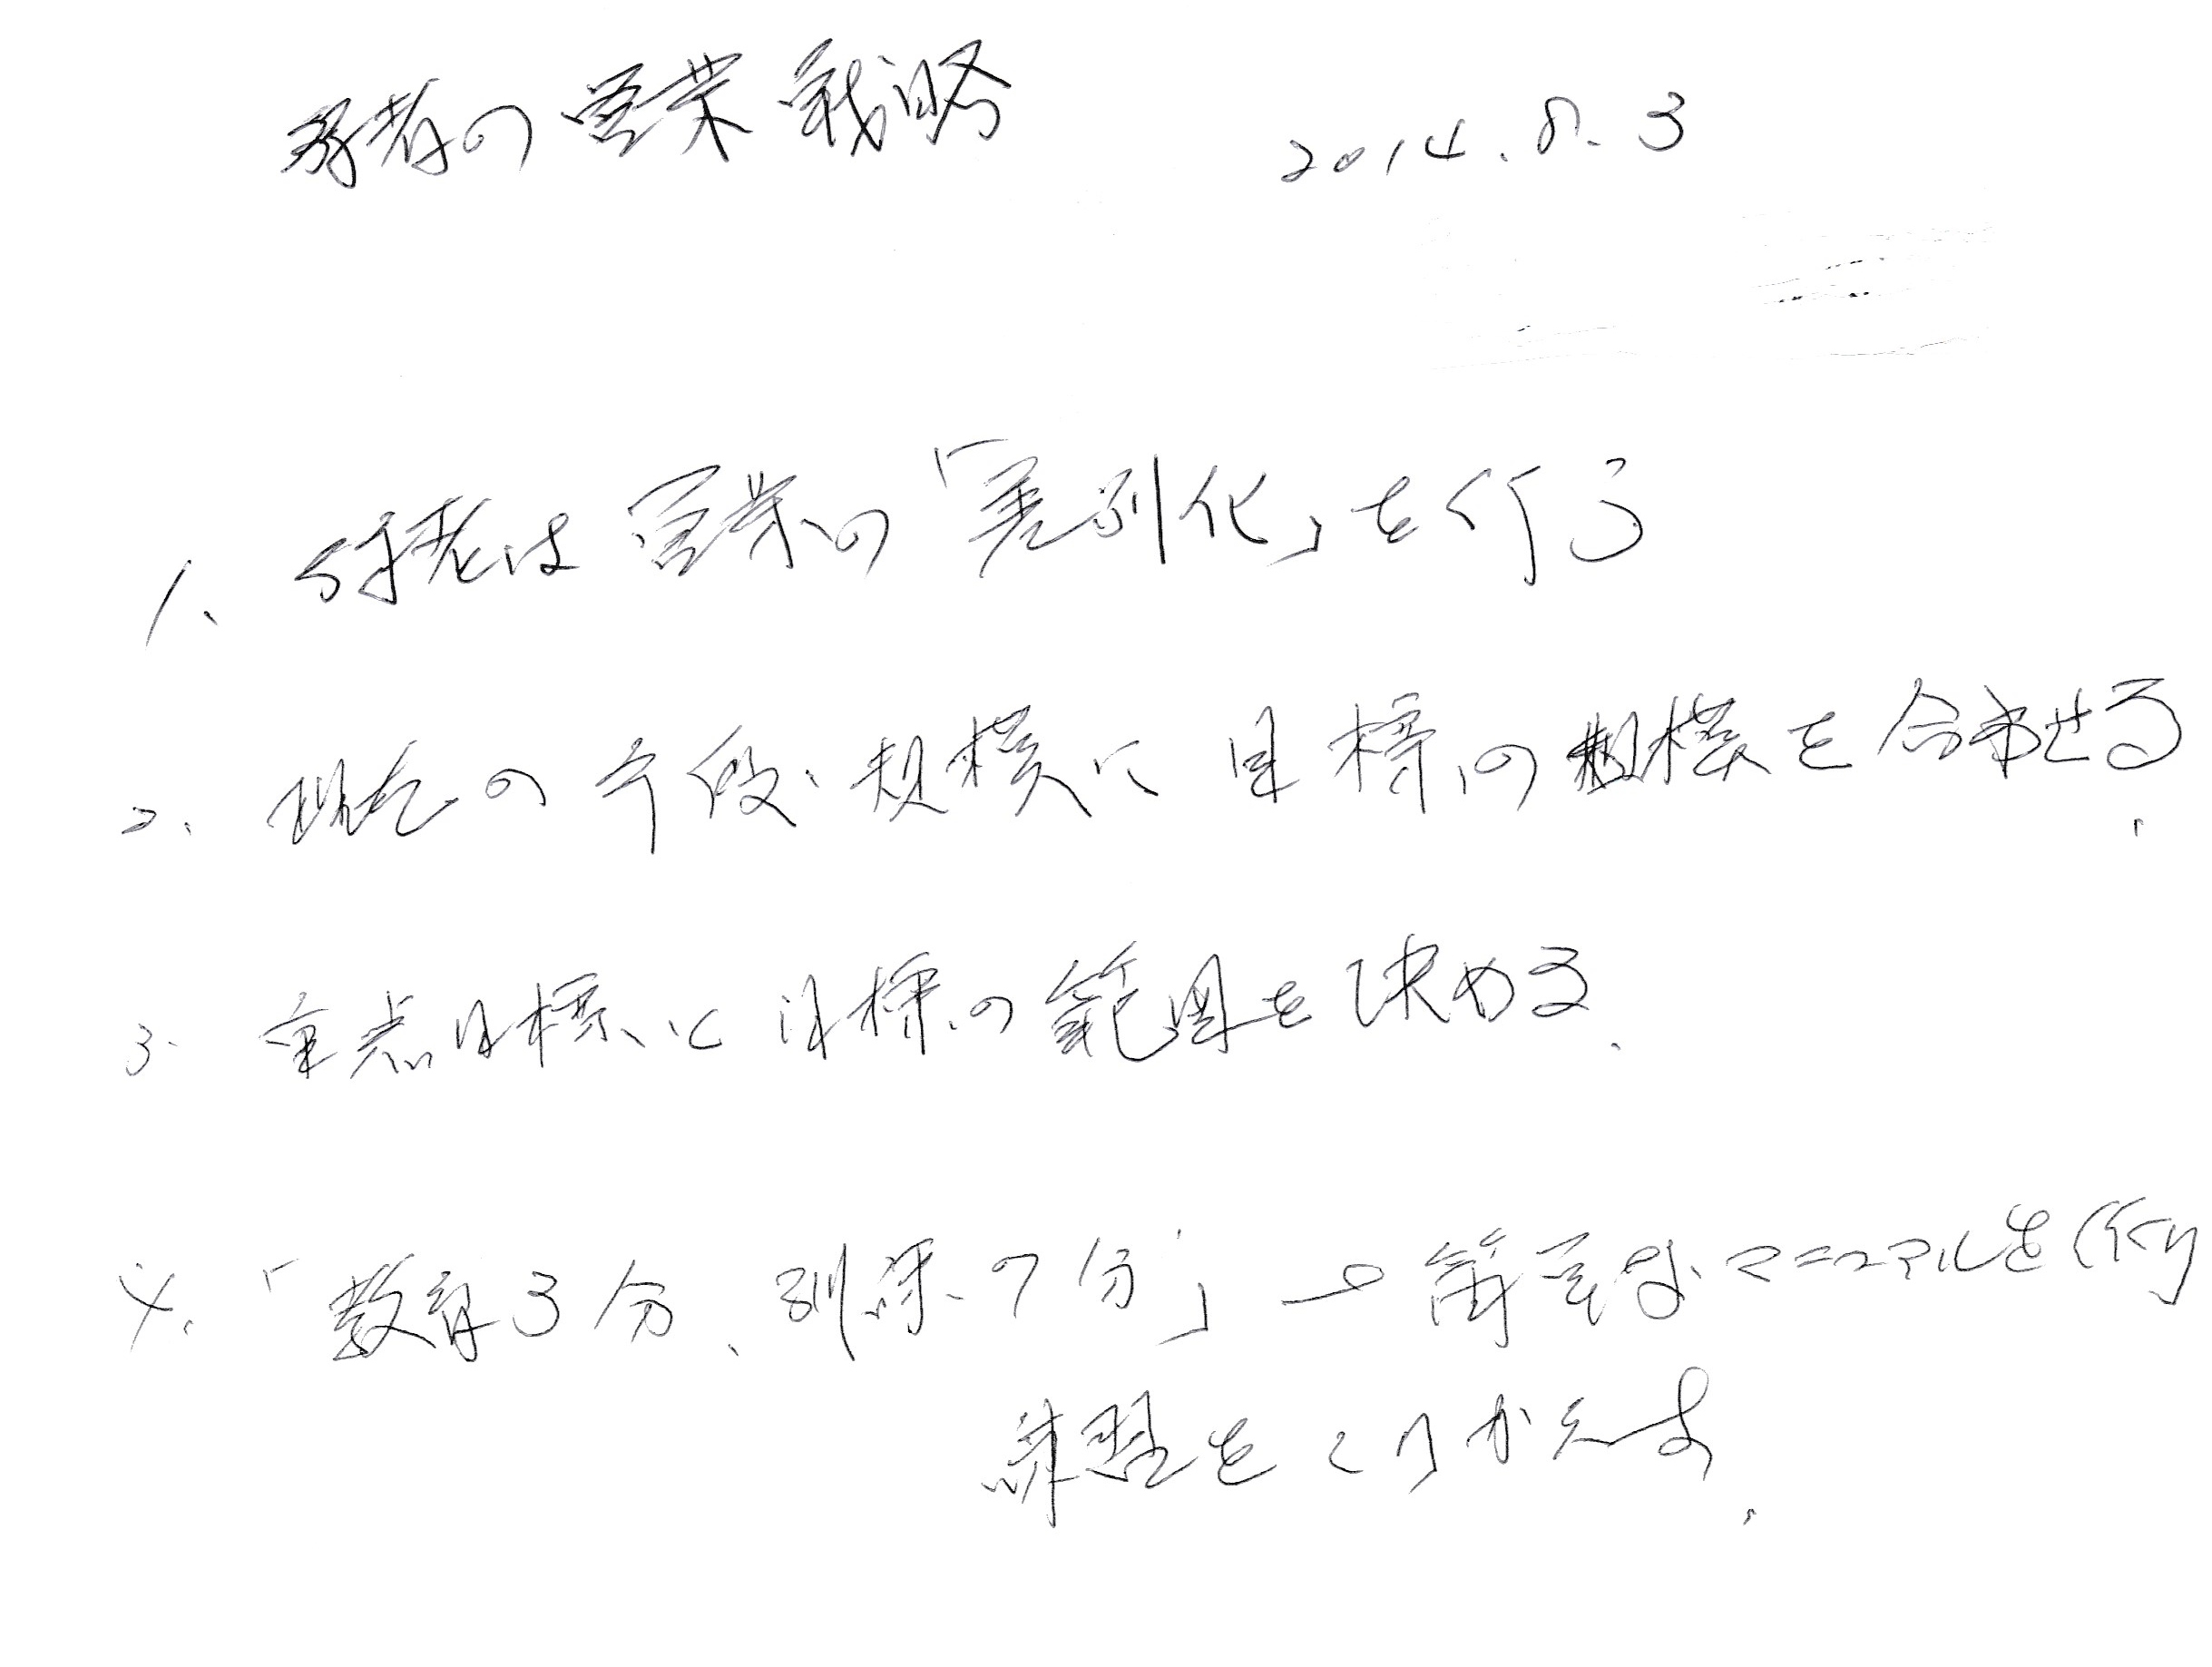 弱者の営業戦略 2014.8.3
1、弱者は営業の「差別化」を行う
2、現在の手段、規模に目標の規模を合わせる.
3. 重点目標と目標の範囲を決める.
4.「教育3分、訓練7分」→ 簡単なマニュアルを作り
練習をくりかえす.